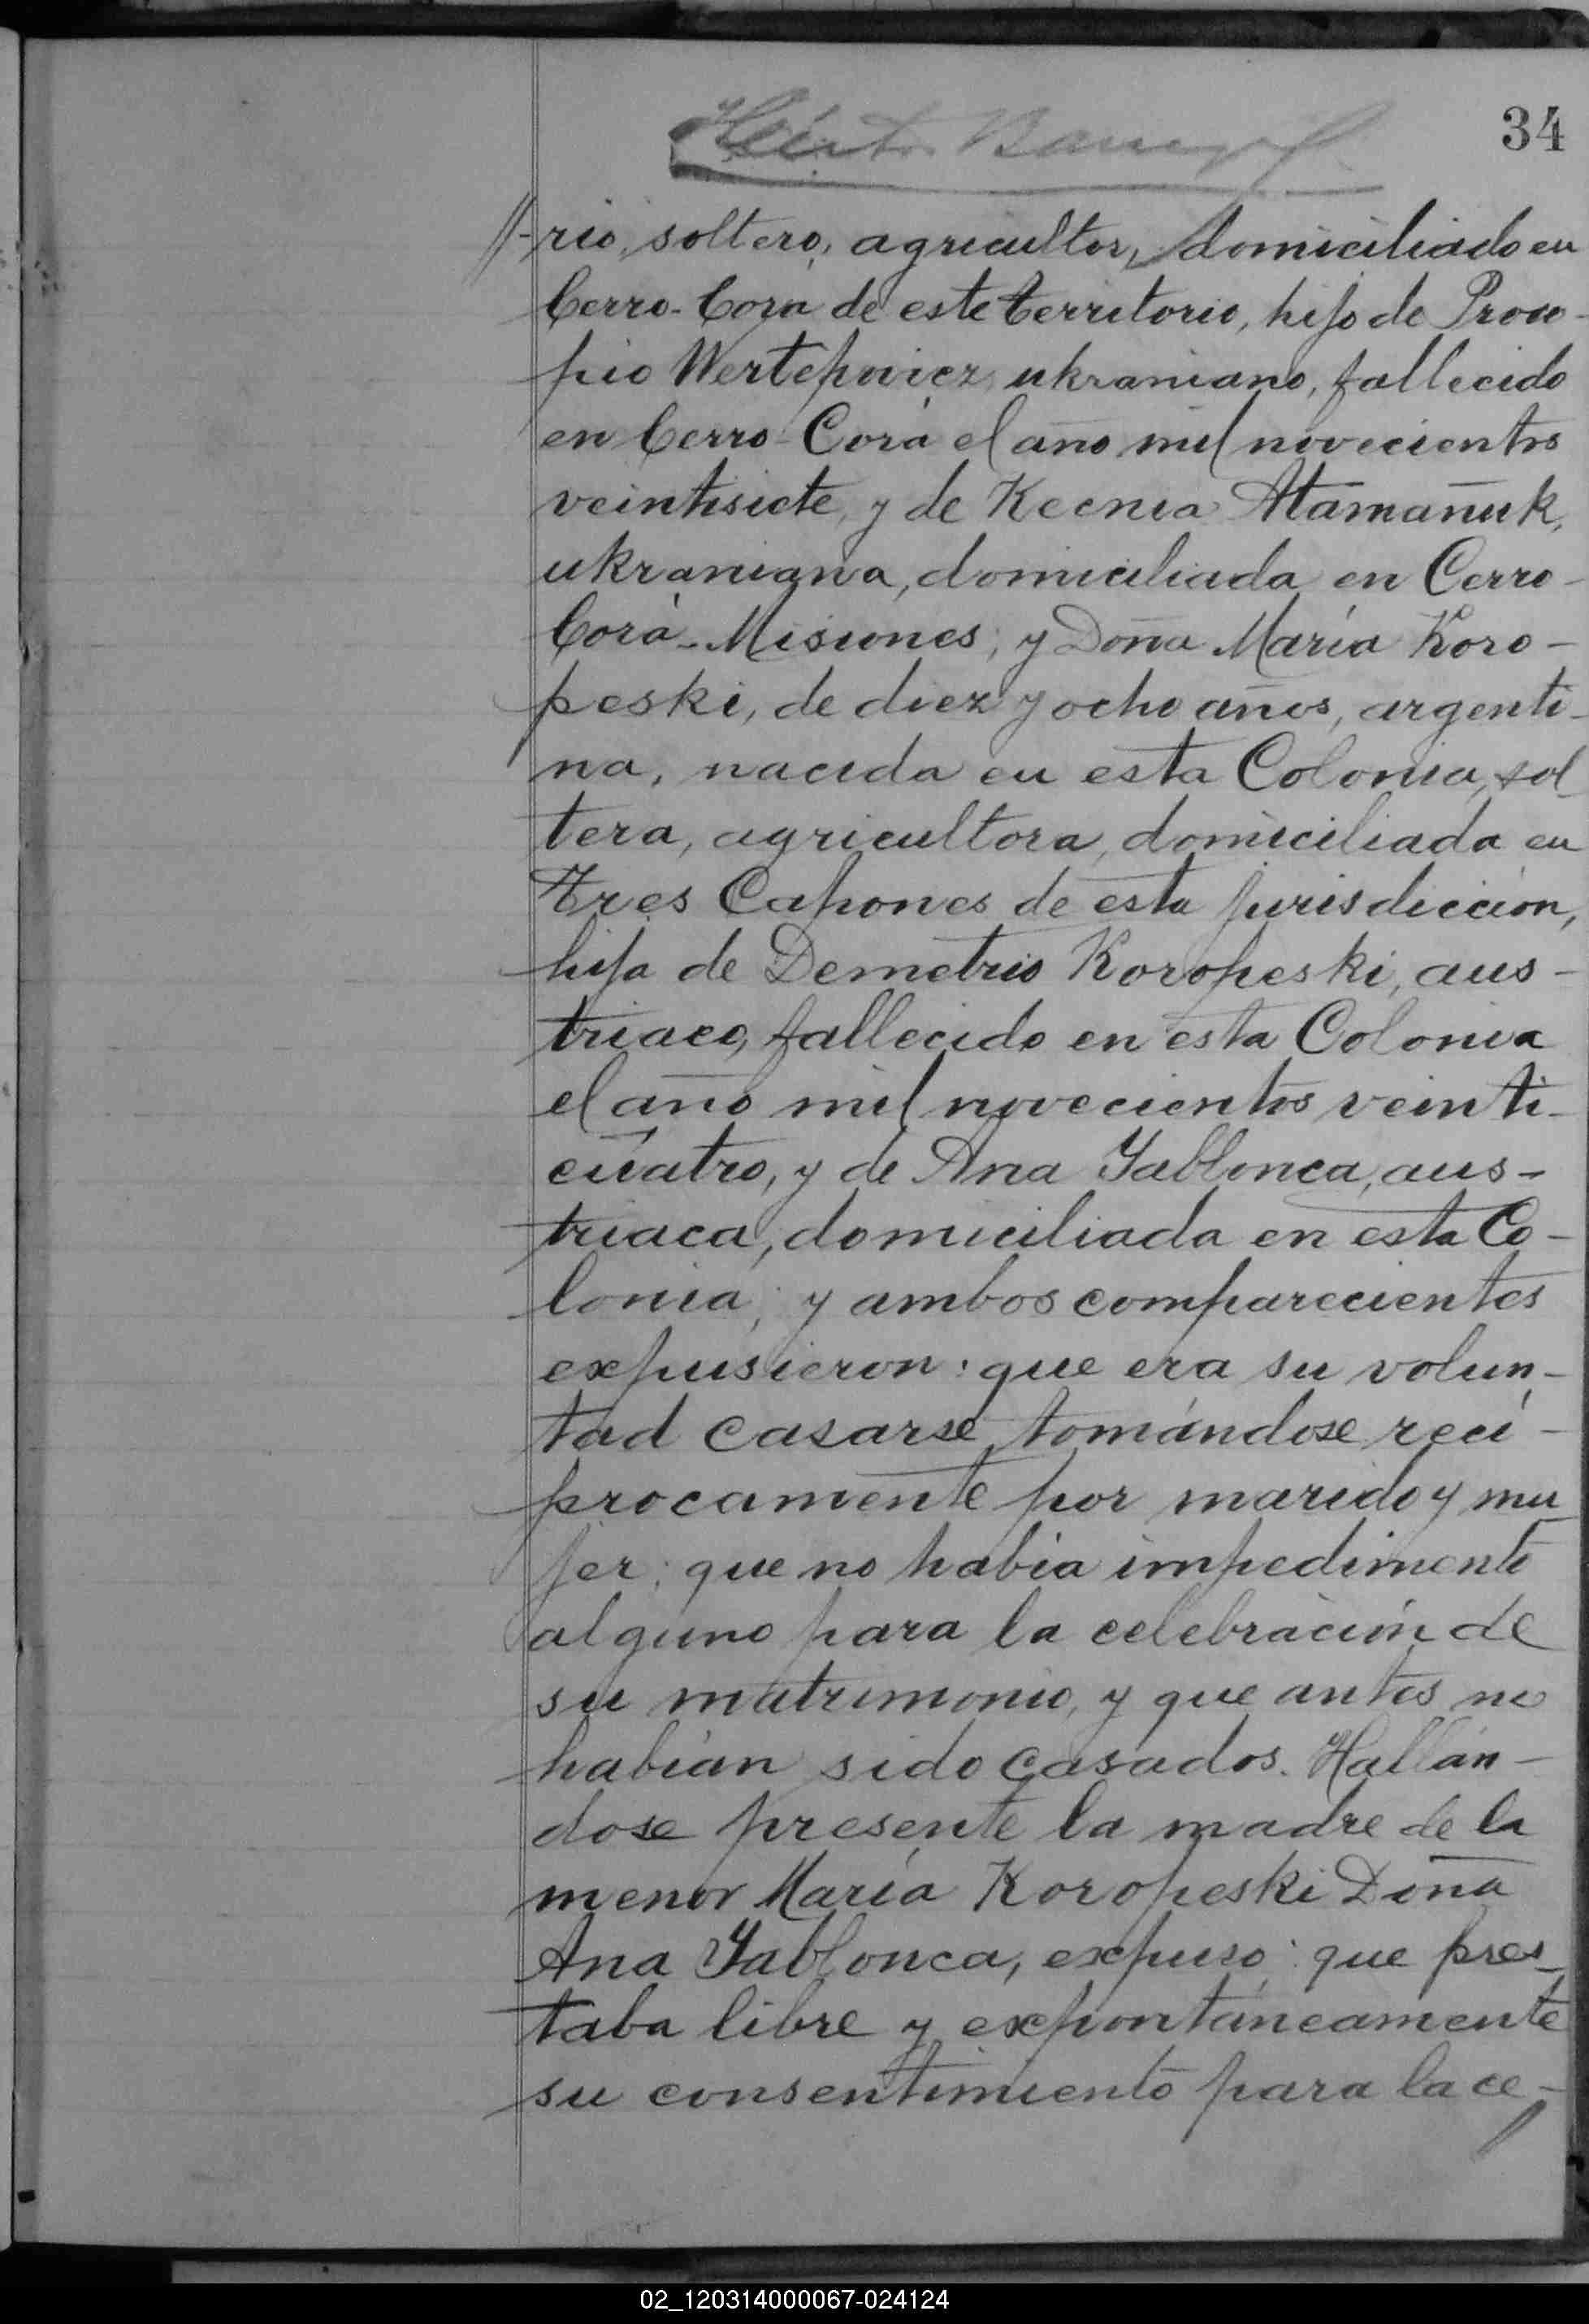 34
//-rio, soltero, agricultor, domiciliado en
Cerro-Corá de este territorio, hijo de Proco-
pio Wertepovicz, ukraniano, fallecido
en Cerro-Corá el año mil novecientos
veintisiete, y de Kecnia Atamañuk,
ukraniana, domiciliada en Cerro-
Corá-Misiones; y Doña María Koro-
peski, de diez y ocho años, argenti-
na, nacida en esta Colonia, sol-
tera, agricultora, domiciliada en
Tres Capones de esta jurisdicción,
hija de Demetrio Koropeski, aus-
triaco, fallecido en esta Colonia
el año mil novecientos veinti-
cuatro, y de Ana Yablonca, aus-
triaca, domiciliada en esta Co-
lonia; y ambos comparecientes
expusieron: que era su volun-
tad casarse, tomándose recí-
procamente por marido y mu-
jer; que no había impedimento
alguno para la celebración de
su matrimonio, y que antes no
habían sido casados. Hallán-
dose presente la madre de la
menor María Koropeski Doña
Ana Yablonca, expuso: que pres-
taba libre y expontáneamente
su consentimiento para la ce-
02_120314000067-024124